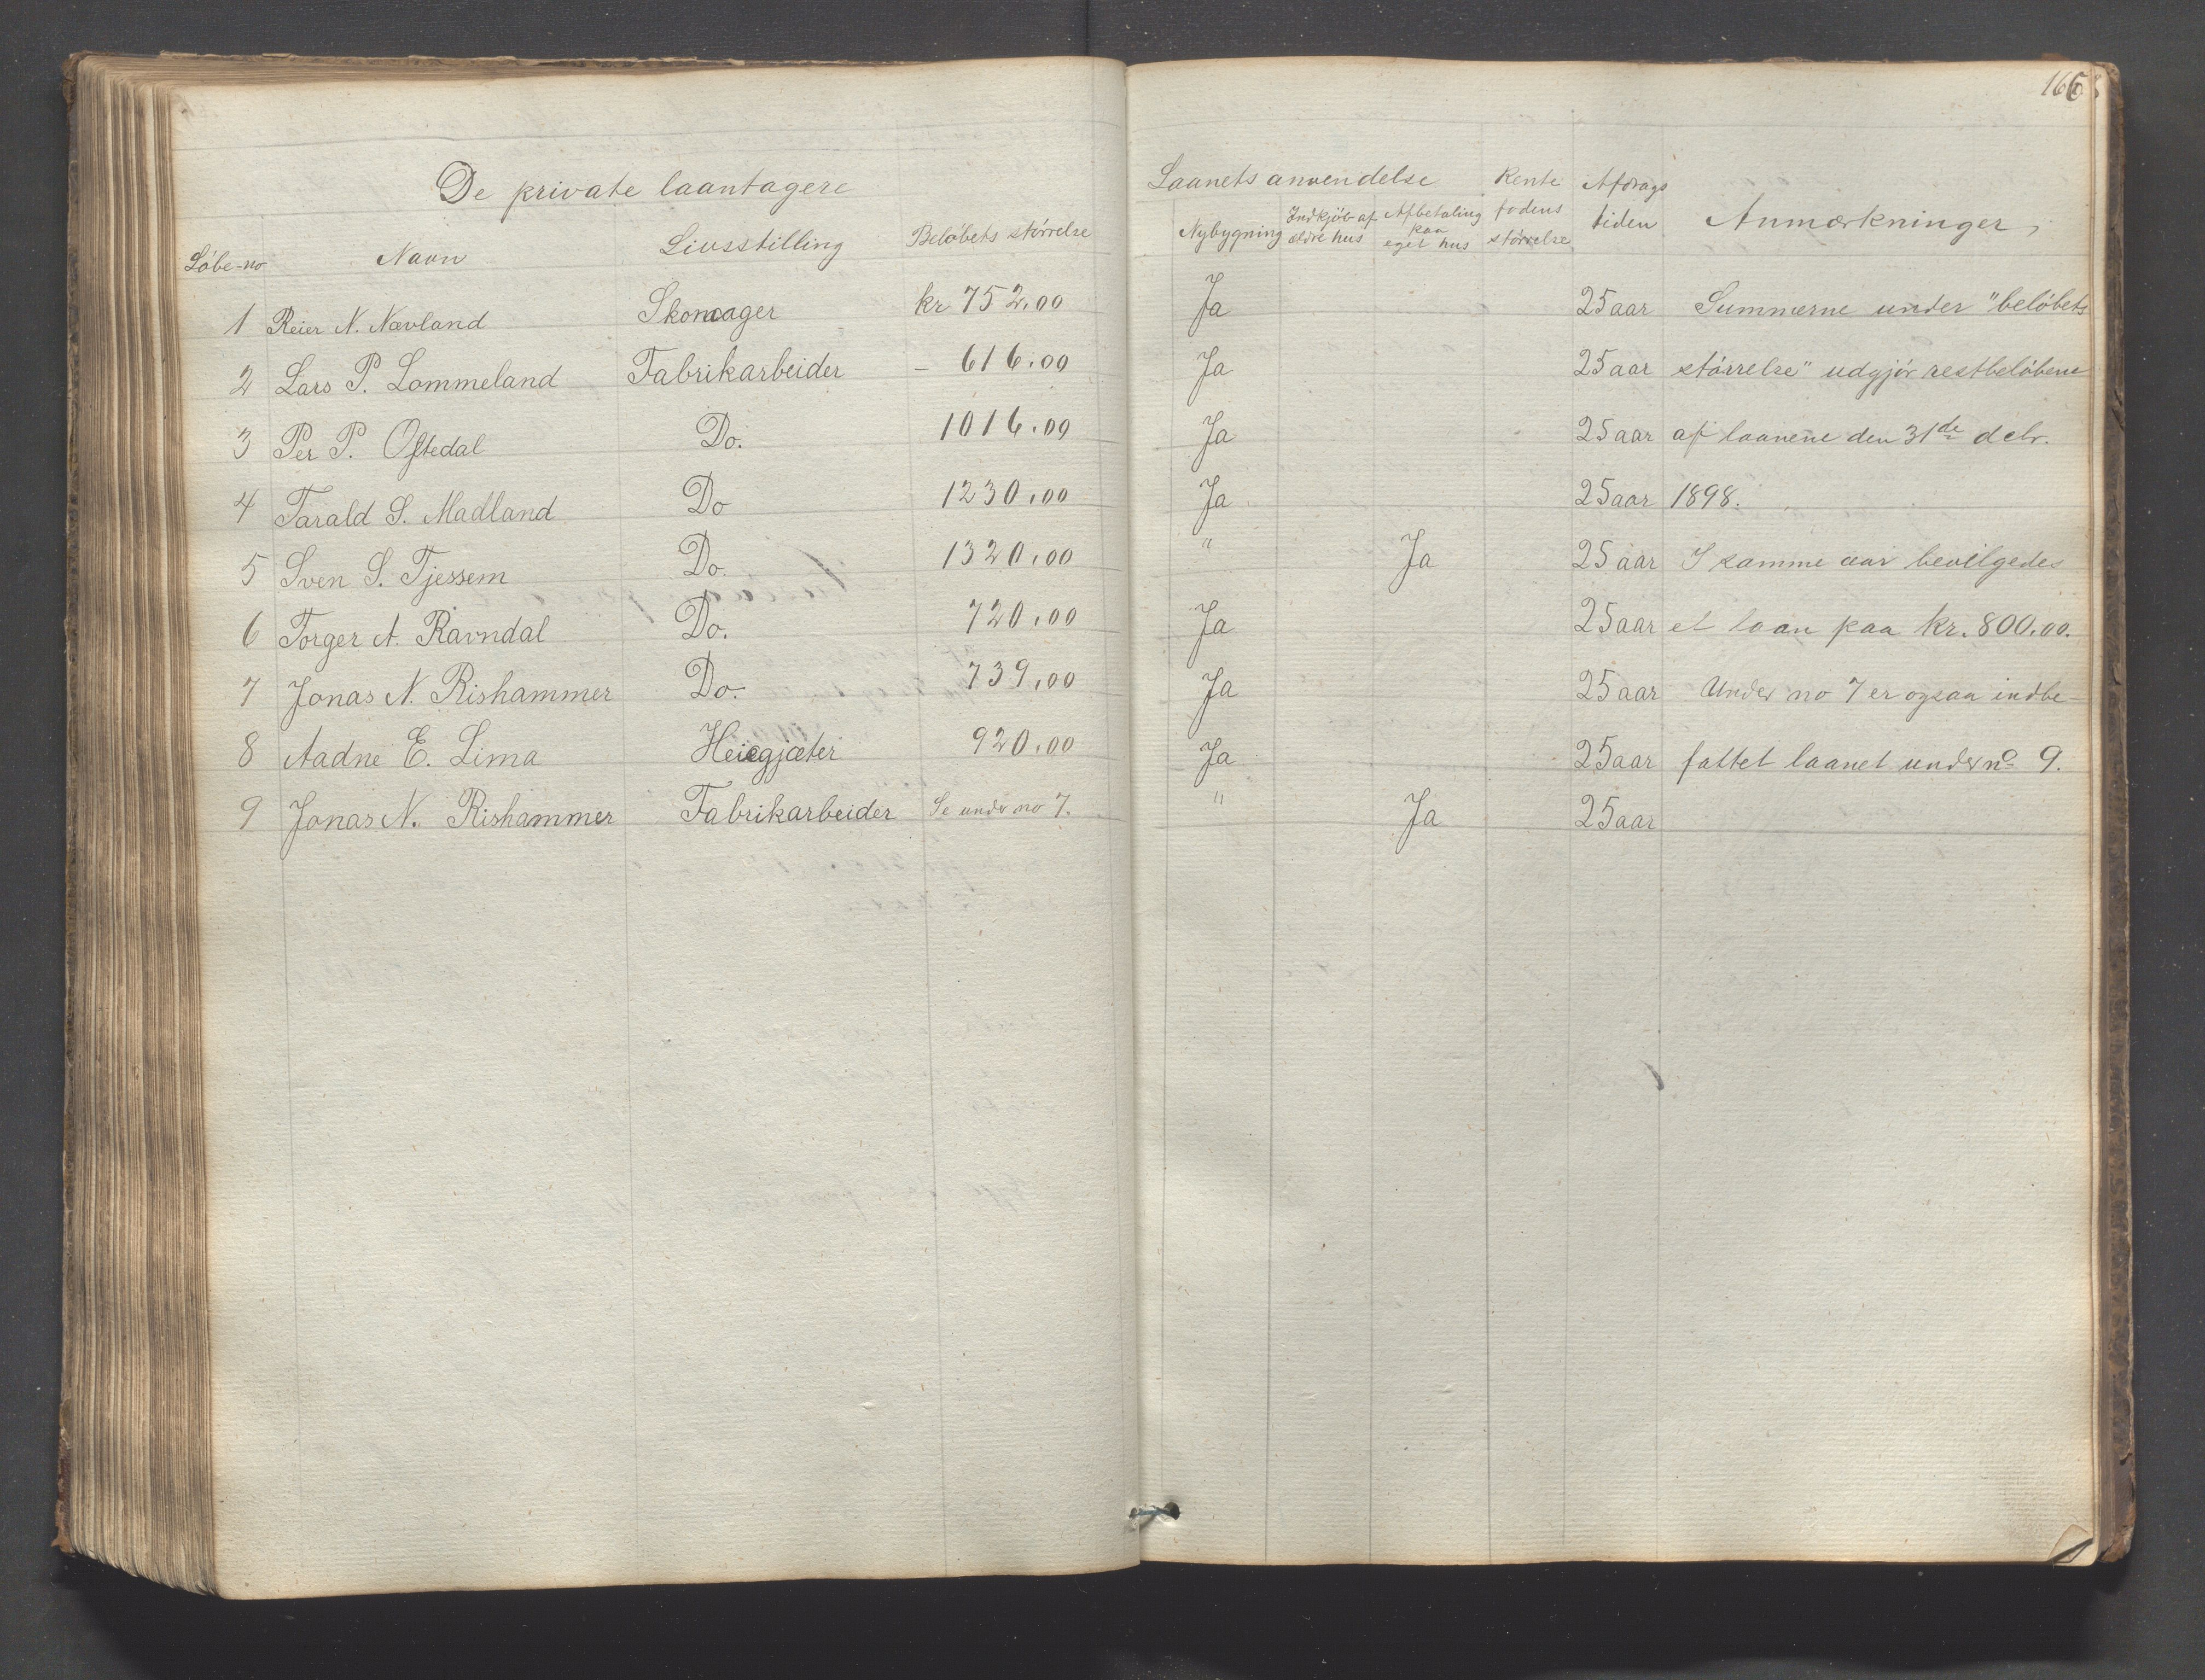 166
De private laantagere
Løbe-no Navn Livsstilling Beløbets størrelse
Laanets anvendelse
Nybygning Indkjøb af ældre hus Afbetaling paa eget hus Rentefodens størrelse Afdragstiden Anmærkninger
1 Reier N. Nævland Skomager kr 752,00 Ja 25 aar Summerne under "beløbets
2 Lars P. Lommeland Fabrikarbeider – 616,00 Ja 25 aar størrelse" udgjør restbeløbene
3 Per P. Oftedal Do. 1016,00 Ja 25 aar af laanene den 31de debr.
4 Tarald S. Madland Do 1230,00 Ja 25 aar 1898.
5 Sven S. Tjessem Do. 1320,00 " Ja 25 aar I samme aar bevilgedes
6 Torger A. Ravndal Do. 720,00 Ja 25 aar et laan paa kr. 800,00.
7 Jonas N. Rishammer Do. 739,00 Ja 25 aar Under no 7 er ogsaa indbe-
8 Aadne E. Lima Heiegjæter 920,00 Ja 25 aar fattet laanet under no 9.
9 Jonas N. Rishammer Fabrikarbeider Se under no 7. " Ja 25 aar